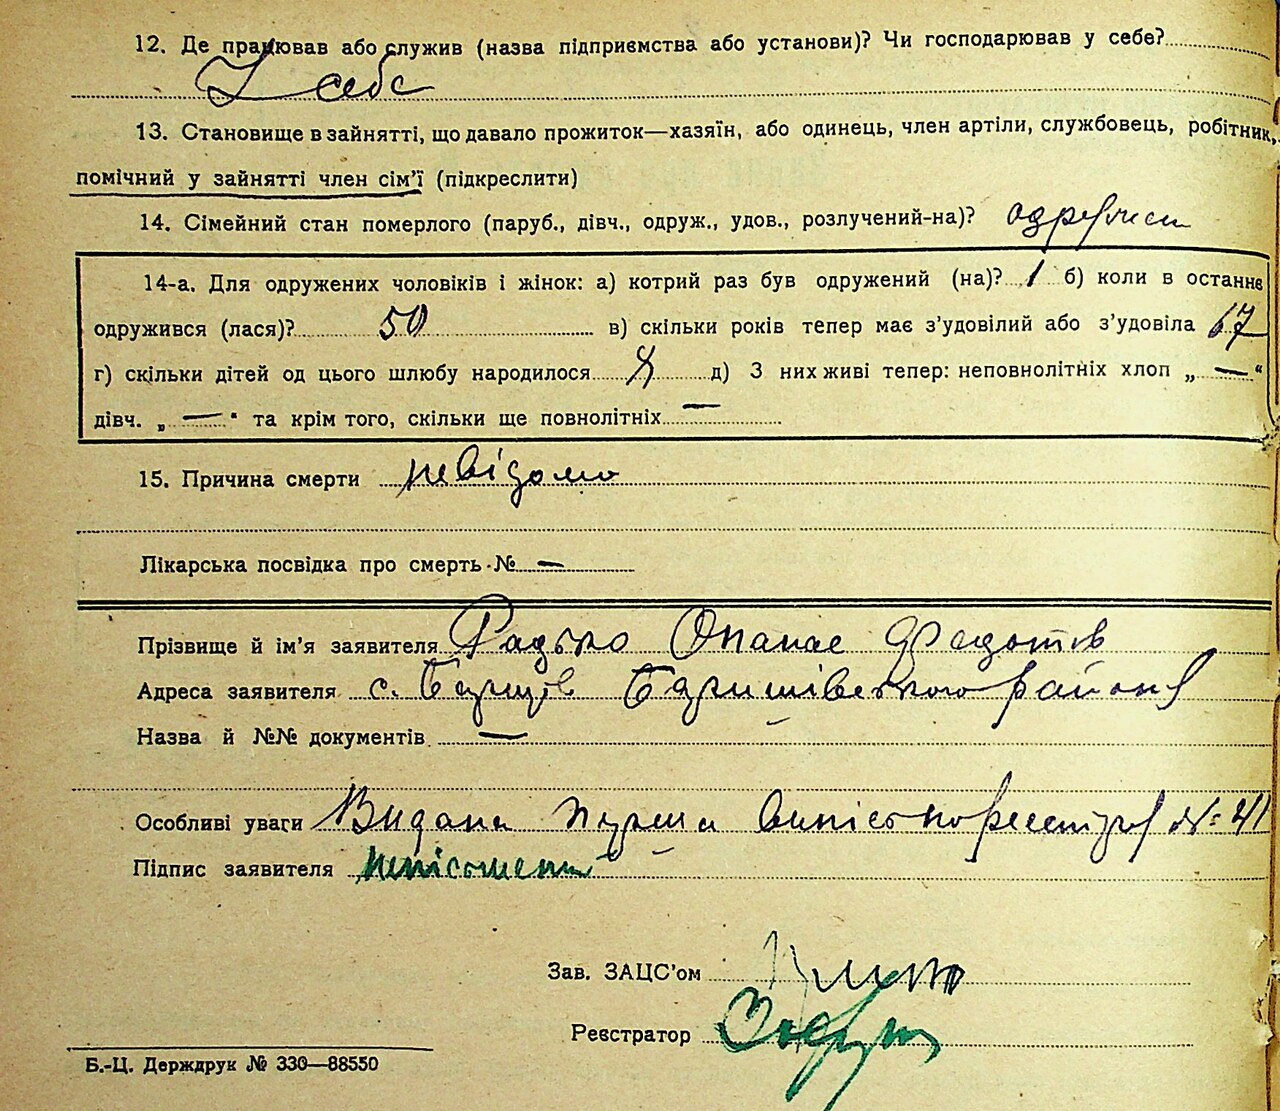 12. Де працював або служив (назва підприємства або установи)? Чи господарював у себе?
У себе
13. Становище в зайнятті, що давало прожиток—хазяїн, або одинець, член артіли, службовець, робітник,
помічний у зайнятті член сім'ї (підкреслити)
14. Сімейний стан померлого (паруб., дівч., одруж., удов., розлучений-на)?
14-а. Для одружених чоловіків і жінок: а) котрий раз був одружений (на)? 1 б) коли в останнє
одружився (лася)? 50 в) скільки років тепер має з'удовілий або з'удовіла 67
г) скільки дітей од цього шлюбу народилося д) З них живі тепер: неповнолітніх хлоп „ — “
дівч. „ — “ та крім того, скільки ще повнолітніх —
15. Причина смерти невідомо
Лікарська посвідка про смерть № —
Прізвище й ім'я заявителя Радько Опанас Федотів
Адреса заявителя с. району
Назва й №№ документів —
Особливі уваги Видана
Підпис заявителя
Зав. ЗАЦС'ом
Реєстратор
Б.-Ц. Держдрук № 330—88550